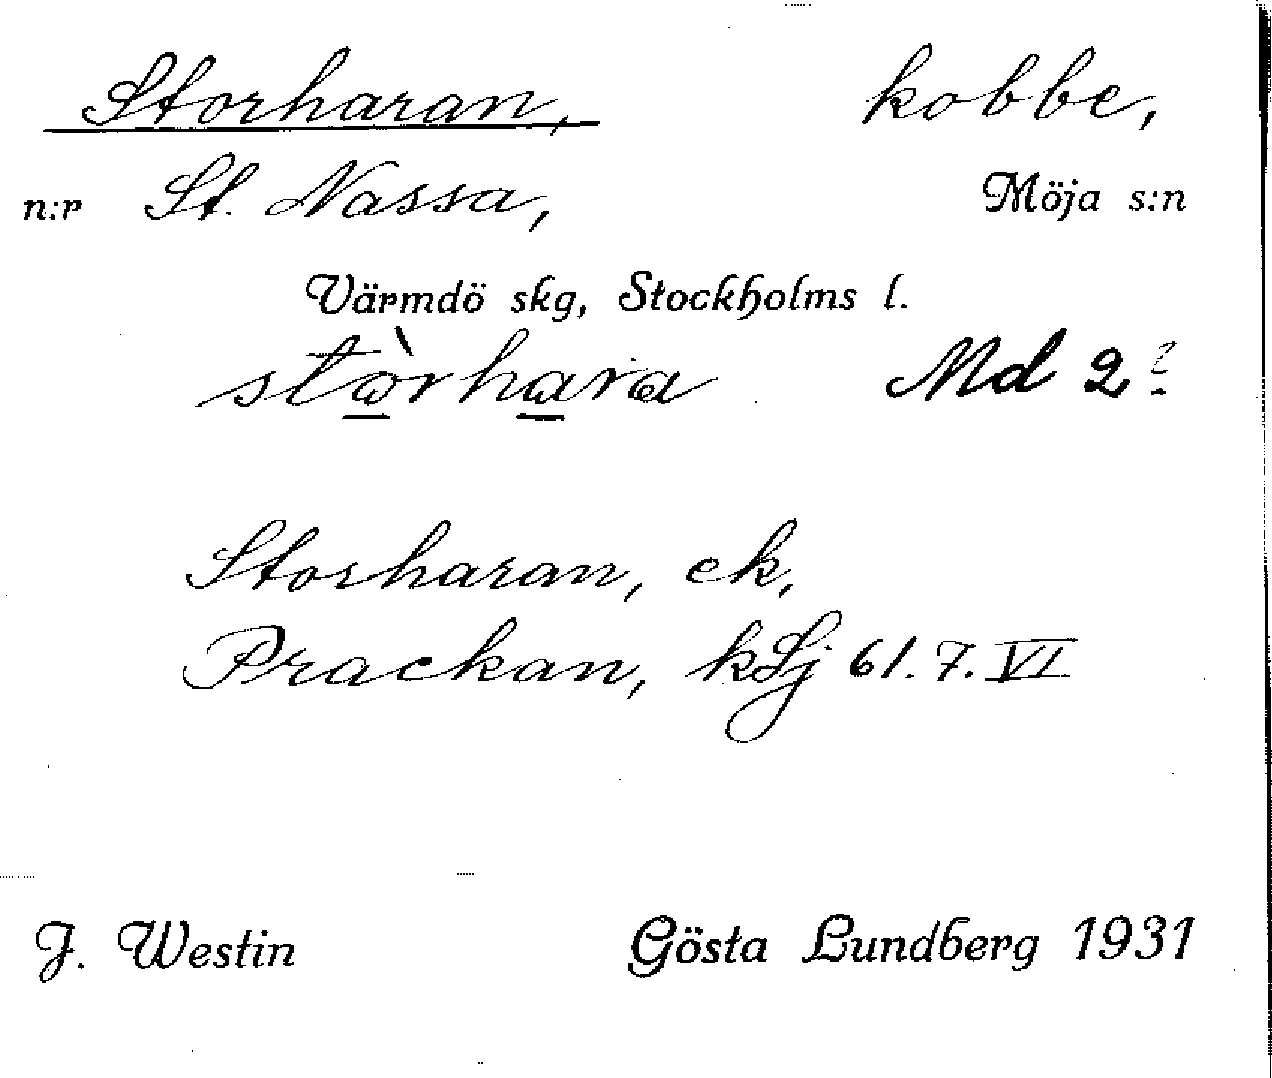 Storharan, kobbe,
n:r St. Nassa, Möja s:n
Värmdö skg, Stockholms l.
stòrhara Md 2
Storharan, ek,
Prackan, kLj 61.7.VI
J. Westin Gösta Lundberg 1931